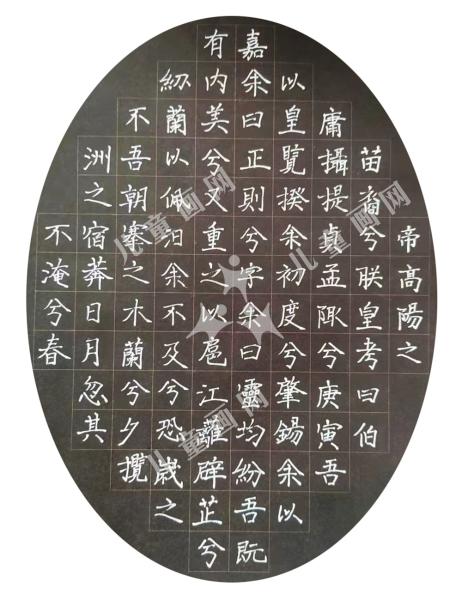 帝高陽之
苗裔兮联皇考曰伯
庸攝提貞孟陬兮庚寅吾
以皇覽揆余初度兮肇錫余以
嘉余曰正則兮字余曰靈均紛吾既
有内美兮又重之以扈江離辟芷兮
紉蘭以佩汩余不及兮恐歲之
不吾朝搴之木蘭兮夕攬
洲之宿莽日月忽其
不淹兮春
儿童画网
儿童画网
儿童画网